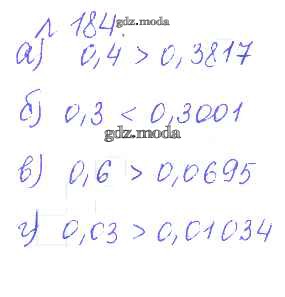 л 184.
gdz.moda
а) 0,4 > 0,3817
б) 0,3 < 0,3001
gdz.moda
в) 0,6 > 0,0695
г) 0,03 > 0,01034